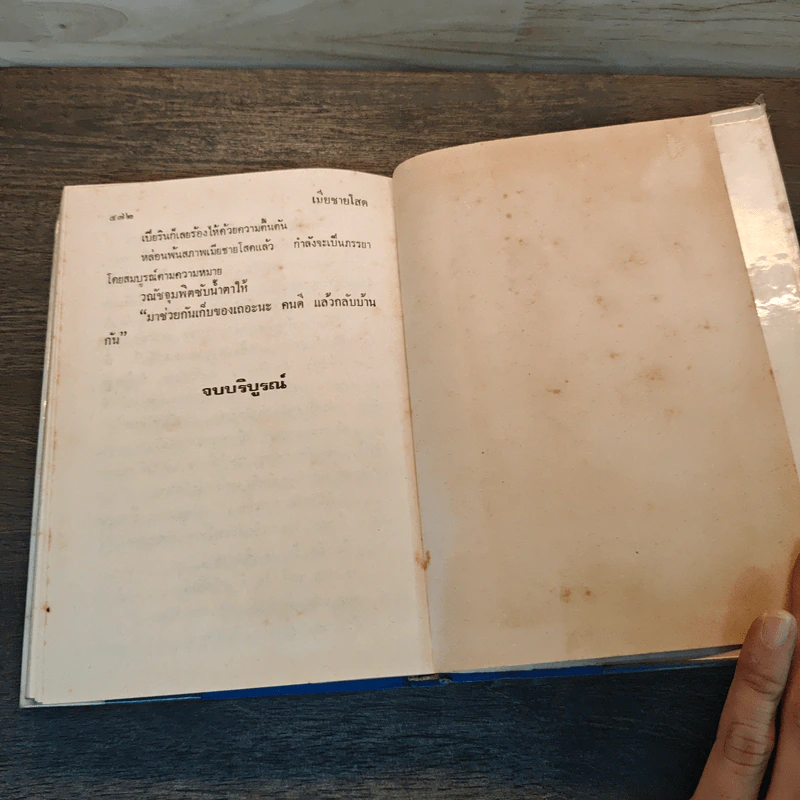 ๕๗๒
เมียชายโสด
เบียรินก็เลยร้องไห้ด้วยความตื้นตัน
หล่อนพ้นสภาพเมียชายโสดแล้ว กำลังจะเป็นภรรยา
โดยสมบูรณ์ตามความหมาย
วณัชจุมพิตซับน้ำตาให้
“มาช่วยกันเก็บของเถอะนะ คนดี แล้วกลับบ้าน
กัน”
จบบริบูรณ์